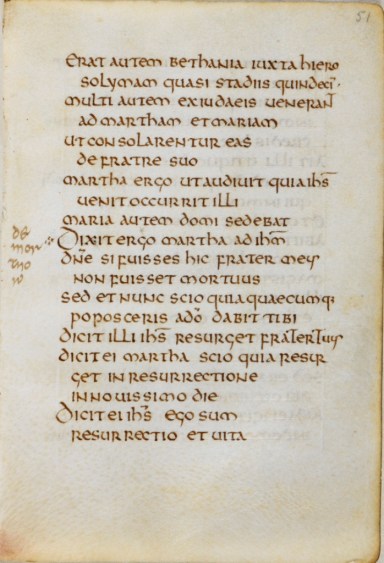 51
erat autem bethania iuxta hiero
solymam quasi stadiis quindeci·
multi autem ex iudaeis ueneran̄
ad martham et mariam
ut consolarentur eas
de fratre suo
martha ergo ut audiuit quia ihs̄
uenit occurrit illi
maria autem domi sedebat
de
mor
tuo
Dixit ergo martha ad ihm̄
dn̄e si fuisses hic frater meus
non fuisset mortuus
sed et nunc scio quia quaecumq·
poposceris a dō dabit tibi
dicit illi ihs̄ resurget frater tuus
dicit ei martha scio quia resur
get in resurrectione
in nouissimo die
Dicit ei ihs̄ ego sum
resurrectio et uita